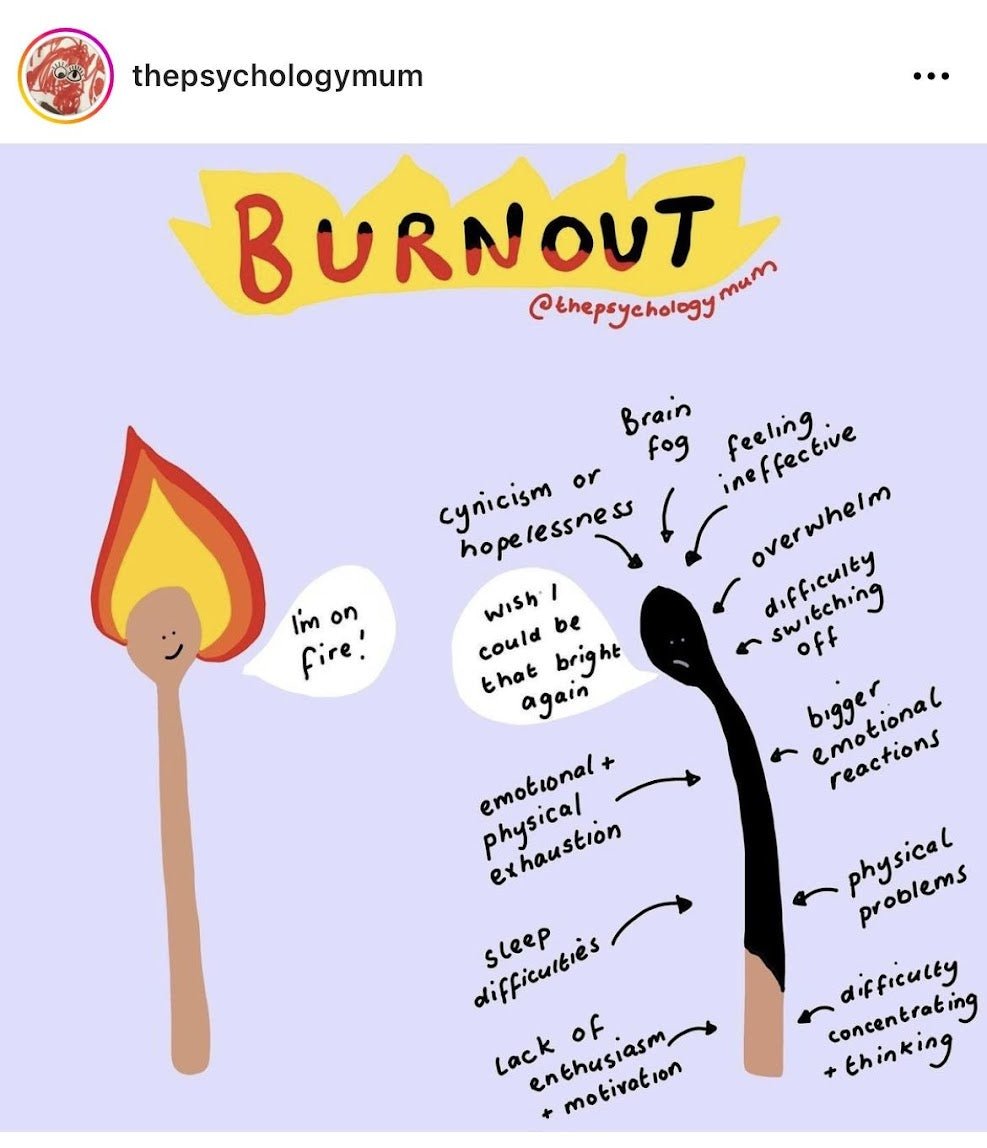 thepsychologymum
BURNOUT
@thepsychologymum
I'm on
fire!
Brain
fog
feeling
ineffective
cynicism or
hopelessness
overwhelm
difficulty
switching
off
wish I
could be
that bright
again
bigger
emotional
reactions
emotional +
physical
exhaustion
physical
problems
sleep
difficulties
difficulty
concentrating
+ thinking
Lack of
enthusiasm
+ motivation